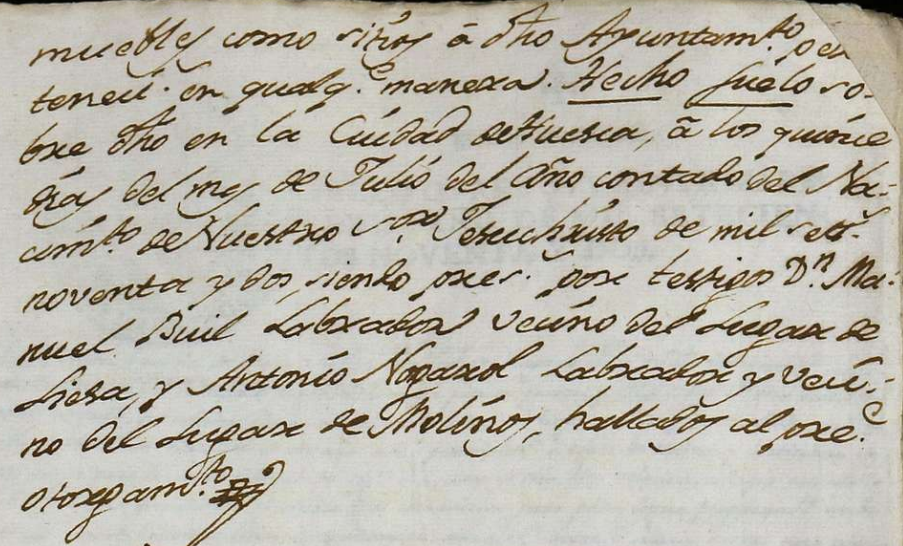 muebles como sitios â dho Ayuntam.to per-
tenec.s en qualq.e manera. Hecho fue lo so-
bre dho en la Ciudad de Huesca, â los quince
dias del mes de Julio del Año contado del Na-
cim.to de Nuestro S.or Jesuchristo de mil set.s
noventa y dos, siendo pres.s por testigos D.n Ma-
nuel Buil Labrador vecino del Lugar de
Liesa, y Antonio Nogarol Labrador y veci-
no del Lugar de Molinos, hallados al pre.e
otorgam.to